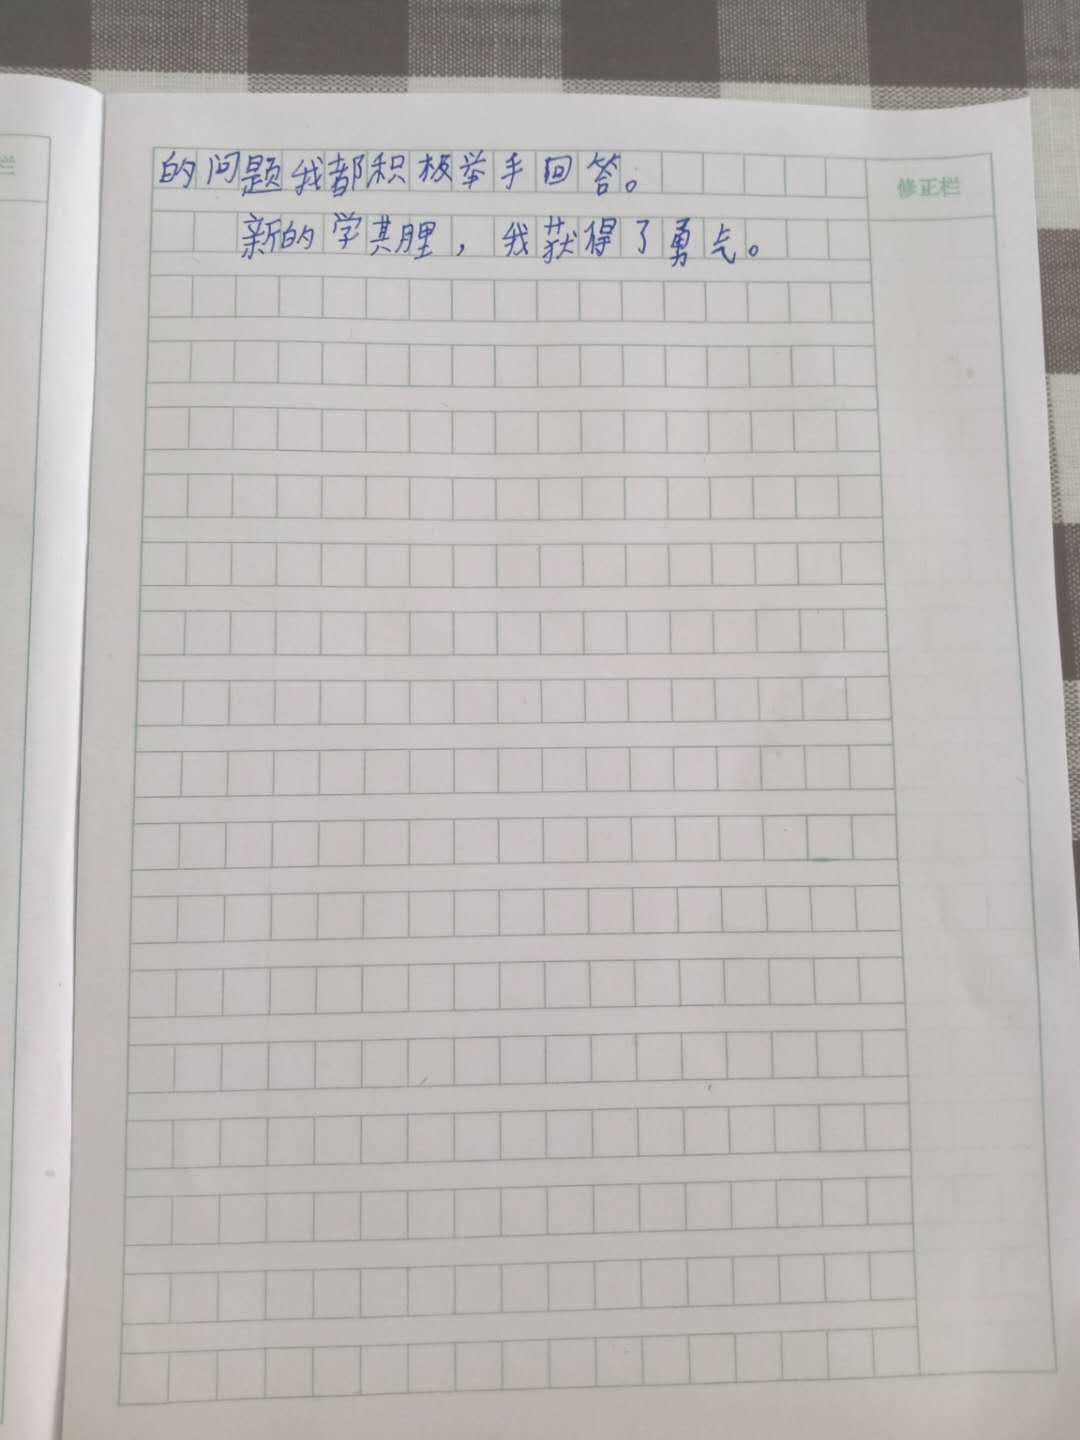 的问题我都积极举手回答。
修正栏
新的学其月里，我获得了勇气。
栏